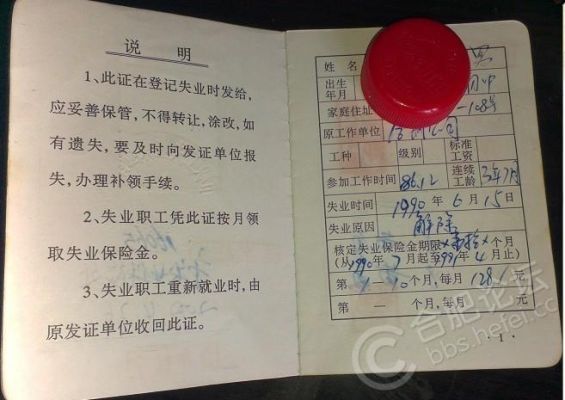 说 明
1、此证在登记失业时发给,
应妥善保管,不得转让,涂改,如
有遗失,要及时向发证单位报
失,办理补领手续。
2、失业职工凭此证按月领
取失业保险金。
3、失业职工重新就业时,由
原发证单位收回此证。
姓名
出生年月
家庭住址 一108号
原工作单位
工种 级别 标准工资
参加工作时间 86.12 连续工龄 3年7月
失业时间 1990年6月15日
失业原因 解除
核定失业保险金期限 个月
(从1990年7月起至991年4月止)
第1一10个月,每月 元
第 一 个月,每月 元
·1·
合肥论坛
bbs.hefei.cc